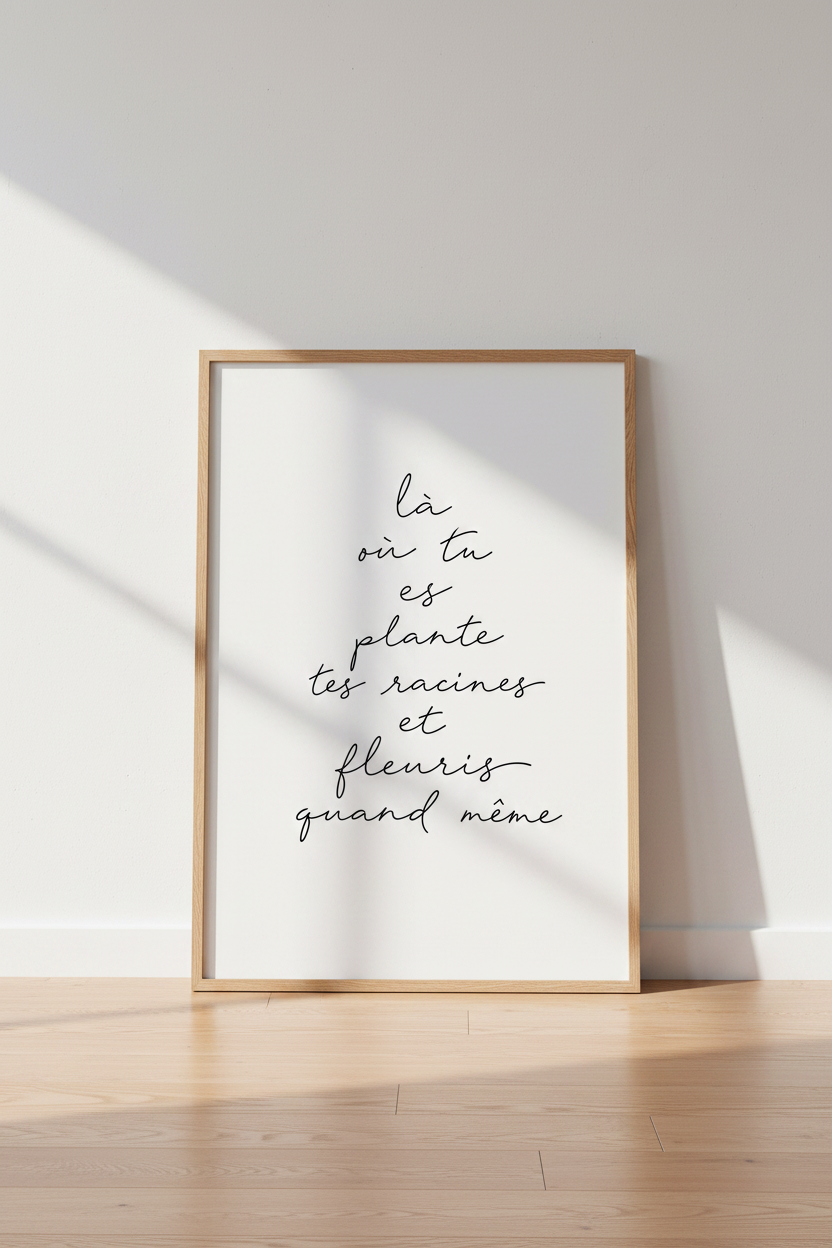 là
où tu
es
plante
tes racines
et
fleuris
quand même